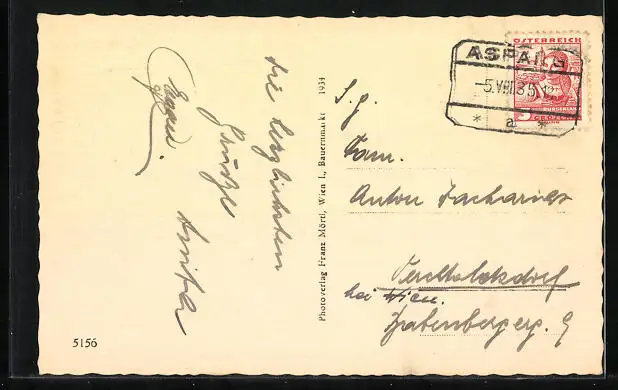 die herzlichsten
Grüße
Anita
5156
Photoverlag Franz Mörtl, Wien I., Bauernmarkt 1934
ÖSTERREICH
ASPANG
-5.VIII.35.12
* a *
BURGENLAND
GROSCHEN
S. g.
Fam.
Anton Zacharias
Perchtoldsdorf
bei Wien.
Babenbergerg. 9